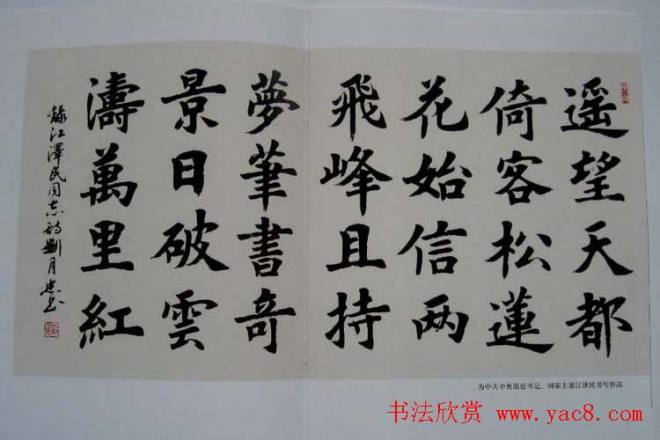 遥望天都
倚客松蓮
花始信两
飛峰且持
夢筆書奇
景日破雲
濤萬里紅
錄江澤民同志詩劉月忠書
为中共中央原总书记、国家主席江泽民书写作品
书法欣赏 www.yac8.com